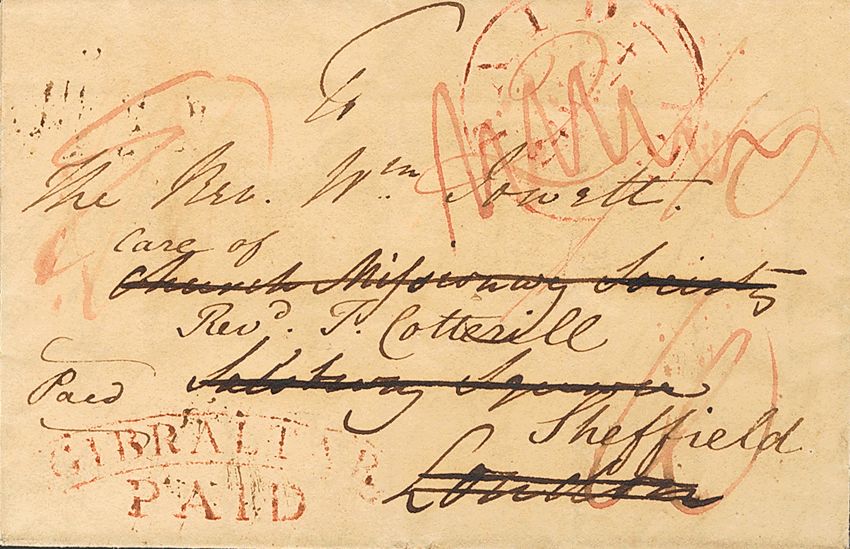 To
The Rev. Wm Jowett.
Care of
Church Missionary Society
Revd. T. Cotterill
Paid Salisbury Square
Sheffield
London
GIBRALTAR
PAID